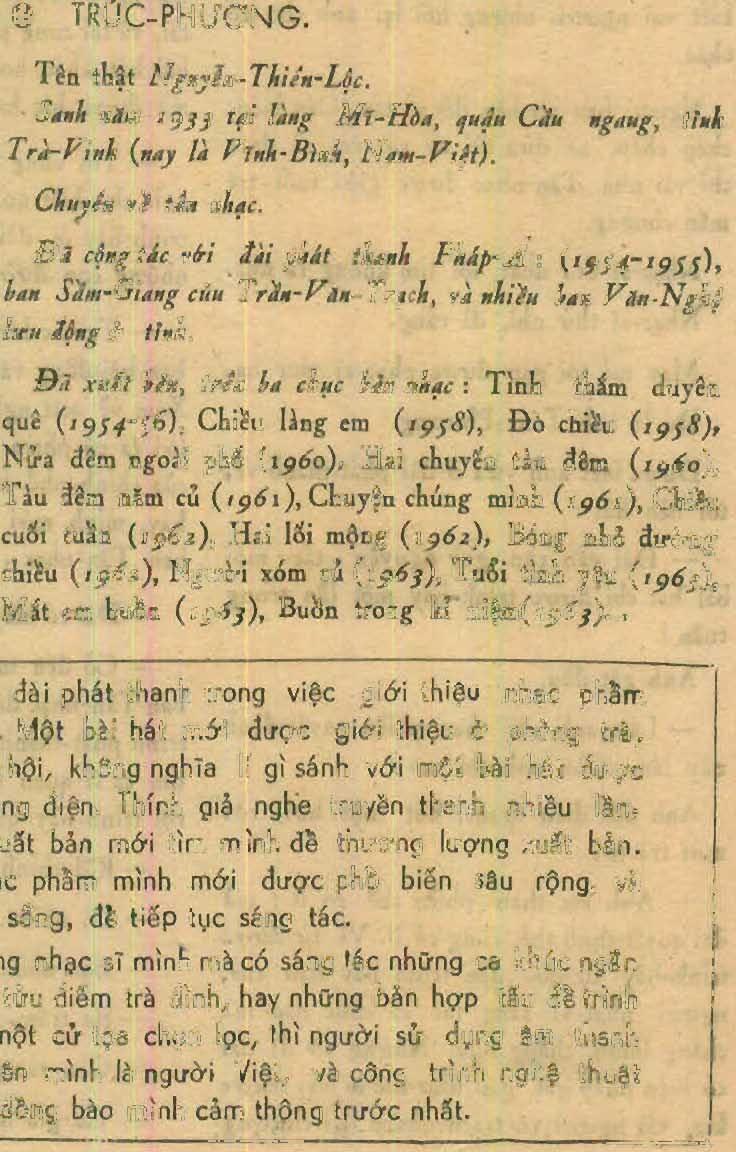 TRÚC-PHƯƠNG.
Tên thật Nguyễn-Thiên-Lộc.
Sanh năm 1933 tại làng Mĩ-Hòa, quận Cầu ngang, tỉnh
Trà-Vinh (nay là Vĩnh-Bình, Nam-Việt).
Chuyên về tân nhạc.
Đã cộng tác với đài phát thanh Pháp-Á : (1954-1955),
ban Sầm-Giang của Trần-Văn-Trạch, và nhiều ban Văn-Nghệ
lưu động ở tỉnh.
Đã xuất bản, trên ba chục bản nhạc : Tình thắm duyên
quê (1954-56), Chiều làng em (1958), Đò chiều (1958),
Nửa đêm ngoài phố (1960), Hai chuyến tàu đêm (1960),
Tàu đêm năm củ (1961), Chuyện chúng mình (1961), Chiều
cuối tuần (1962), Hai lối mộng (1962), Bóng nhỏ đường
chiều (1962), Người xóm củ (1963), Tuổi tình yêu (1963),
Mắt em buồn (1963), Buồn trong kỉ niệm (1963)..
đài phát thanh trong việc giới thiệu nhạc phẩm
. Một bài hát mới được giới thiệu ở phòng trà,
hội, không nghĩa lí gì sánh với một bài hát được
ng điện. Thính giả nghe truyền thanh nhiều lần,
uất bản mới tìm mình để thương lượng xuất bản.
c phẩm mình mới được phổ biến sâu rộng, và
sống, để tiếp tục sáng tác.
ng nhạc sĩ mình mà có sáng tác những ca khúc ngắn
tửu điếm trà đình, hay những bản hợp tấu để trình
một cử tọa chọn lọc, thì người sử dụng âm thanh
ên mình là người Việt, và công trình nghệ thuật
đồng bào mình cảm thông trước nhất.